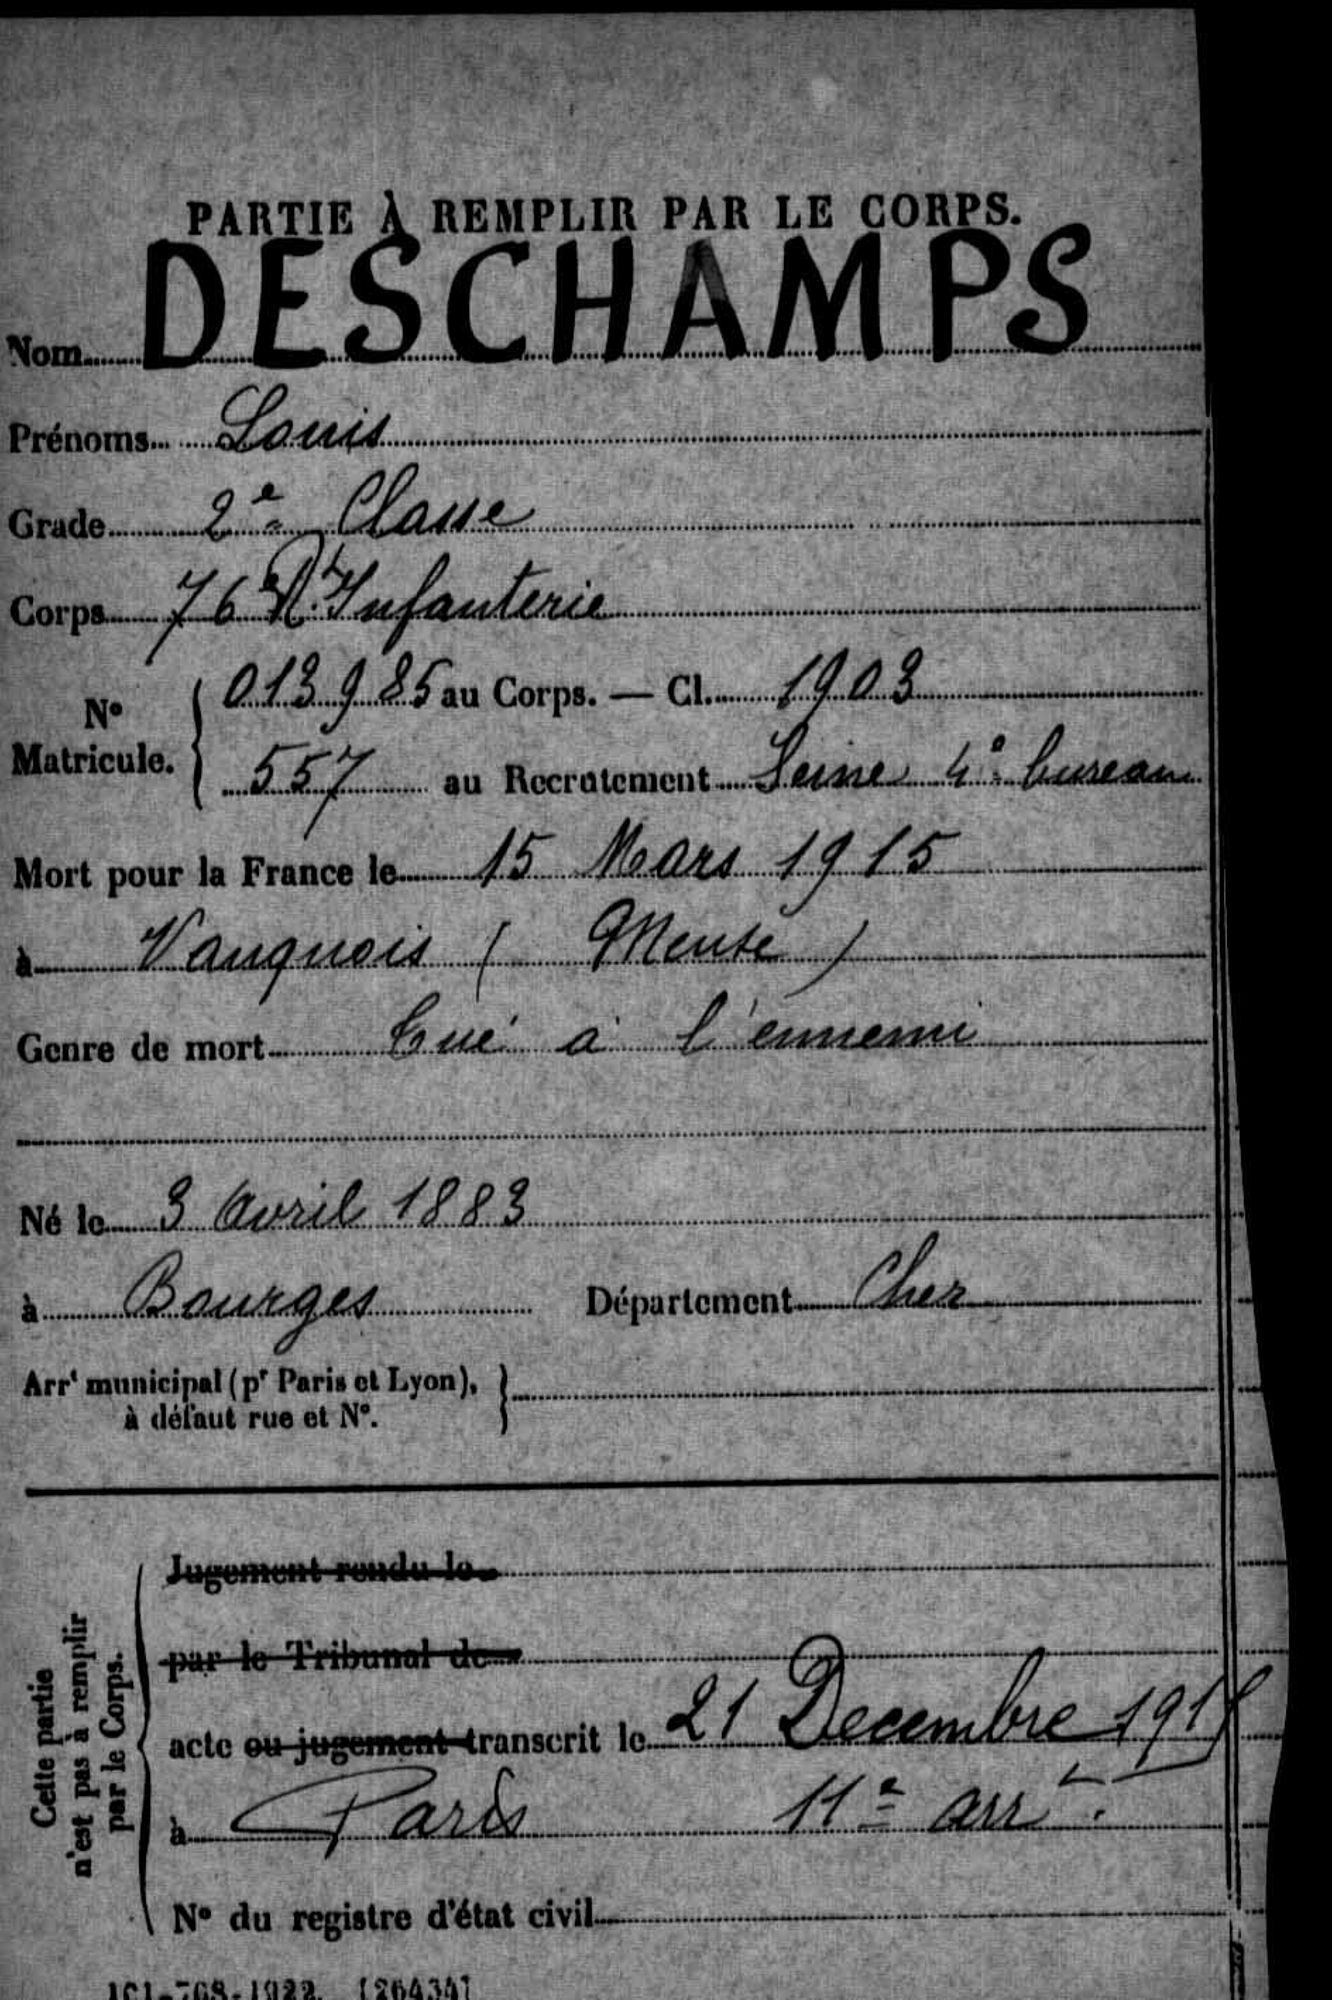 PARTIE À REMPLIR PAR LE CORPS.
Nom DESCHAMPS
Prénoms Louis
Grade 2e Classe
Corps 76e Rt Infanterie
N° Matricule. { 013985 au Corps. — Cl. 1903
557 au Recrutement Seine 4e bureau
Mort pour la France le 15 Mars 1915
à Vauquois ( Meuse )
Genre de mort Tué à l'ennemi
Né le 3 Avril 1883
à Bourges Département Cher
Arrt municipal (pr Paris et Lyon), }
à défaut rue et N°.
Cette partie
n'est pas à remplir
par le Corps.
Jugement rendu le
par le Tribunal de
acte ou jugement transcrit le 21 Decembre 1915
à Paris 11e arrt.
N° du registre d'état civil
101-708-1922. [26434]